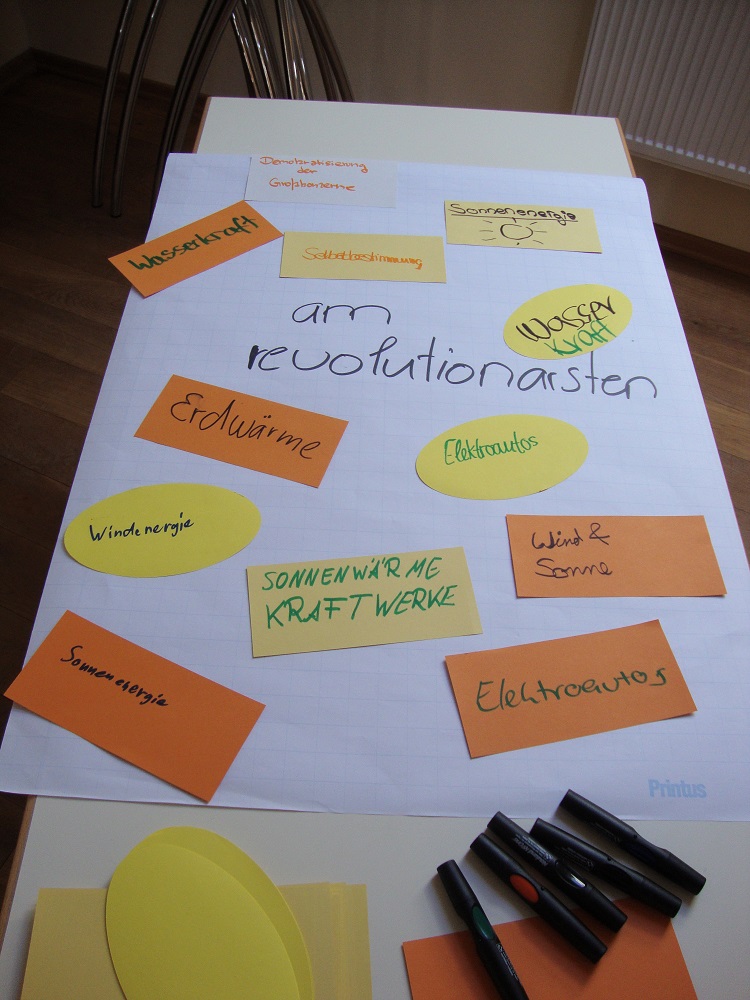 Demokratisierung
der
Großkonzerne
Sonnenenergie
Wasserkraft
Selbstbestimmung
am
Wasser
Kraft
revolutionärsten
Erdwärme
Elektroautos
Windenergie
Wind &
Sonne
SONNENWÄRME
KRAFTWERKE
Sonnenenergie
Elektroautos
Printus